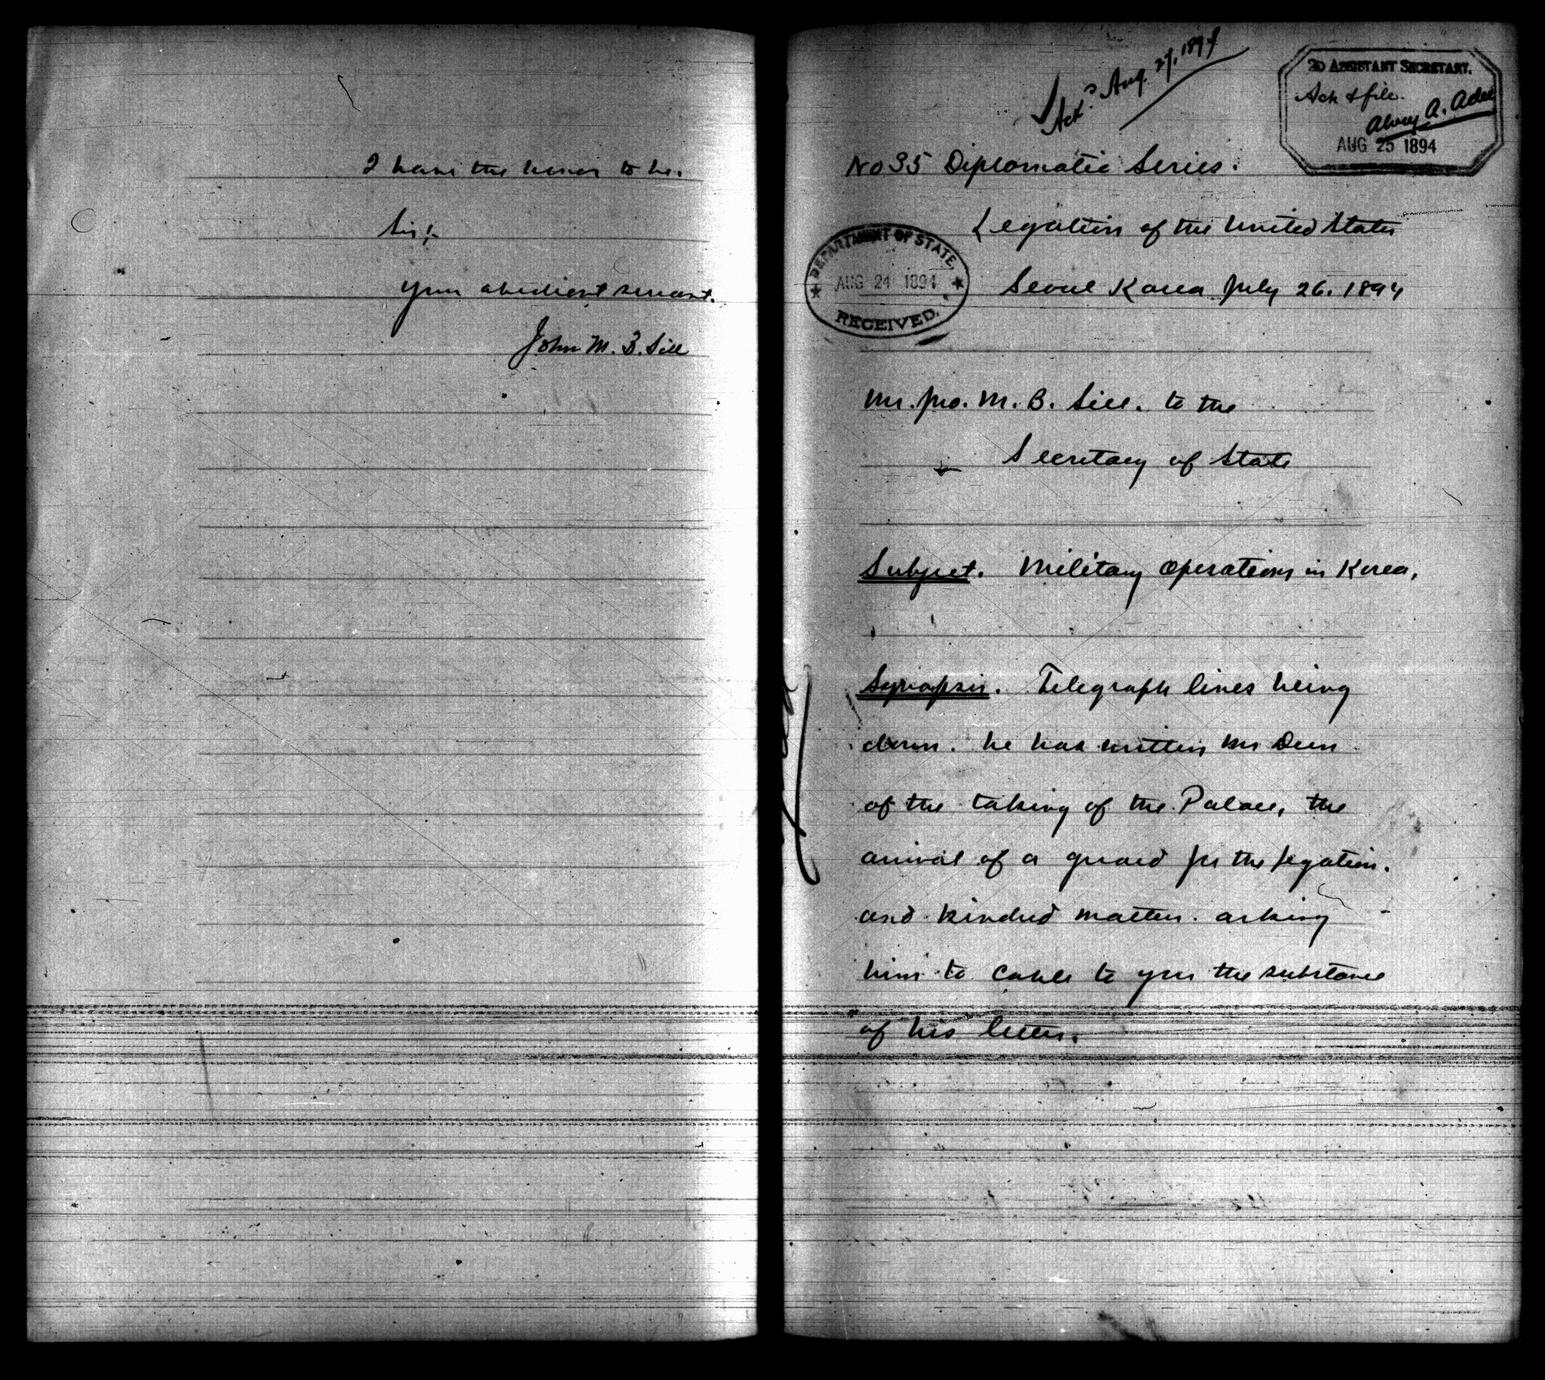 I have the honor to be.
Sir;
Your obedient servant.
John M. B. Sill
Ackd Aug. 27, 1894
2D ASSISTANT SECRETARY.
Ack & file.
Alvey A. Adee
AUG 25 1894
No 35 Diplomatic Series.
Legation of the United States
DEPARTMENT OF STATE.
AUG 24 1894
RECEIVED.
Seoul Korea July 26. 1894
Mr. Jno. M. B. Sill. to the
Secretary of State
Subject. Military Operations in Korea,
Synopsis. Telegraph lines being
down. he has written Mr Dun
of the taking of the Palace, the
arrival of a guard for the legation.
and kindred matters. asking
him to cable to you the substance
of his letter.